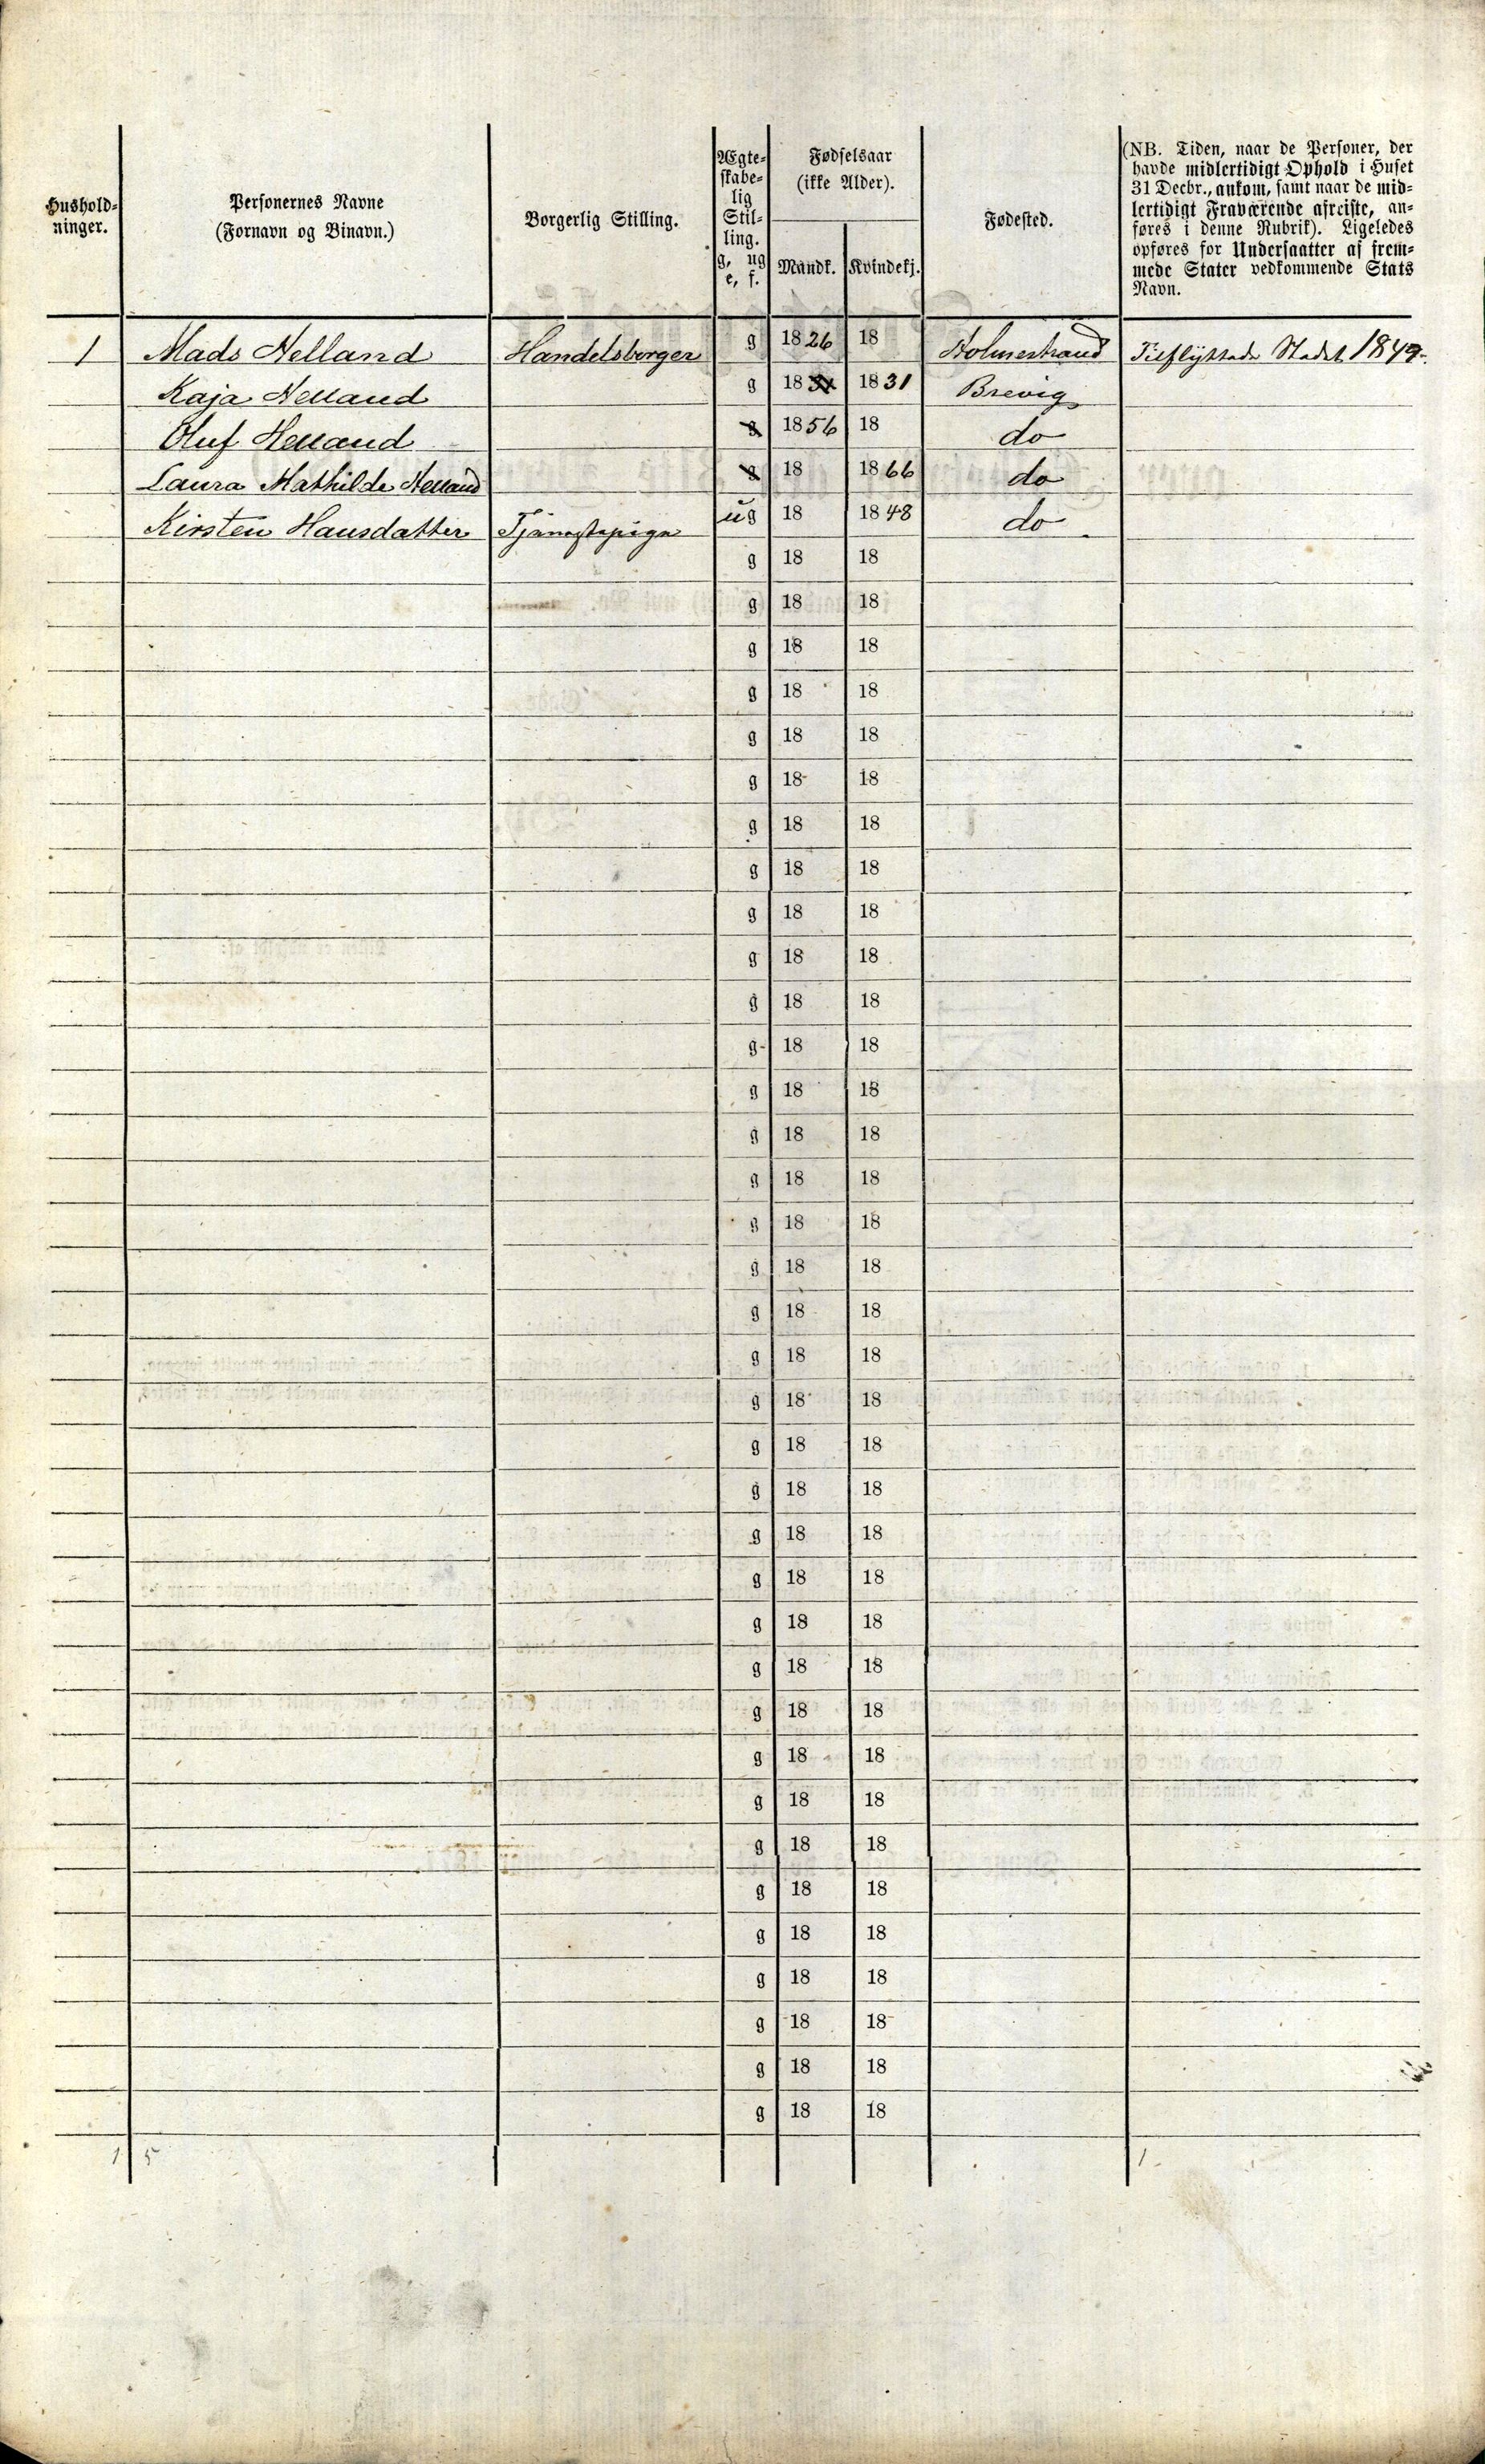 Hushold-
ninger.
Personernes Navne
(Fornavn og Binavn.)
Borgerlig Stilling.
Ægte-
skabe-
lig
Stil-
ling.
g, ug
e, f.
Fødselsaar
(ikke Alder).
Mandk.
Kvindekj.
Fødested.
(NB. Tiden, naar de Personer, der
havde midlertidigt Ophold i Huset
31 Decbr., ankom, samt naar de mid-
lertidigt Fraværende afreiste, an-
føres i denne Rubrik). Ligeledes
opføres for Undersaatter af frem-
mede Stater vedkommende Stats
Navn.
1 Mads Helland Handelsborger g 1826 18 Holmestrand Tilflyttede Stadet 1849.
Kaja Helland g 1831 1831 Brevig
Oluf Helland g 1856 18 do
Laura Mathilde Helland g 18 1866 do
Kirsten Hansdatter Tjenestepige ug 18 1848 do
g 18 18
g 18 18
g 18 18
g 18 18
g 18 18
g 18 18
g 18 18
g 18 18
g 18 18
g 18 18
g 18 18
g 18 18
g 18 18
g 18 18
g 18 18
g 18 18
g 18 18
g 18 18
g 18 18
g 18 18
g 18 18
g 18 18
g 18 18
g 18 18
g 18 18
g 18 18
g 18 18
g 18 18
g 18 18
g 18 18
g 18 18
g 18 18
g 18 18
g 18 18
g 18 18
g 18 18
1 5 1